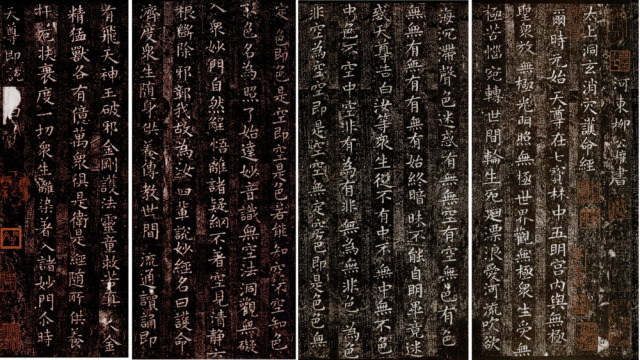 河東柳公權書
太上洞玄消灾護命經
爾時元始天尊在七寶林中五明宮内與無極
聖衆放無極光明照無極世界觀無極衆生受無
極苦惱宛轉世間輪生死廻漂浪愛河流吹欲
海沉滯聲色迷惑有無無空有空無色有色
無無有無有有無有始終暗昧不能自明畢竟迷
惑天尊告曰汝等衆生從不有中不無中無不色
中色不空中空非有為有非無為無非色為色
非空為空空即是空空無定空色即是色色無
定色即色是空即空是色若能知空不空知色
不色名為照了始達妙音識無空法洞觀無礙
入衆妙門自然解悟離諸疑網不著空見清靜六
根斷除邪鄣我故為汝四輩說妙經名曰護命
濟度衆生随身供養傳教世間流通讀誦即
有飛天神王破邪金剛護法靈童救苦真人金
精猛獸各有億萬衆俱是侍衛是經随所供養
扞危扶衰度一切衆生離染者入諸妙門尒時
天尊即說